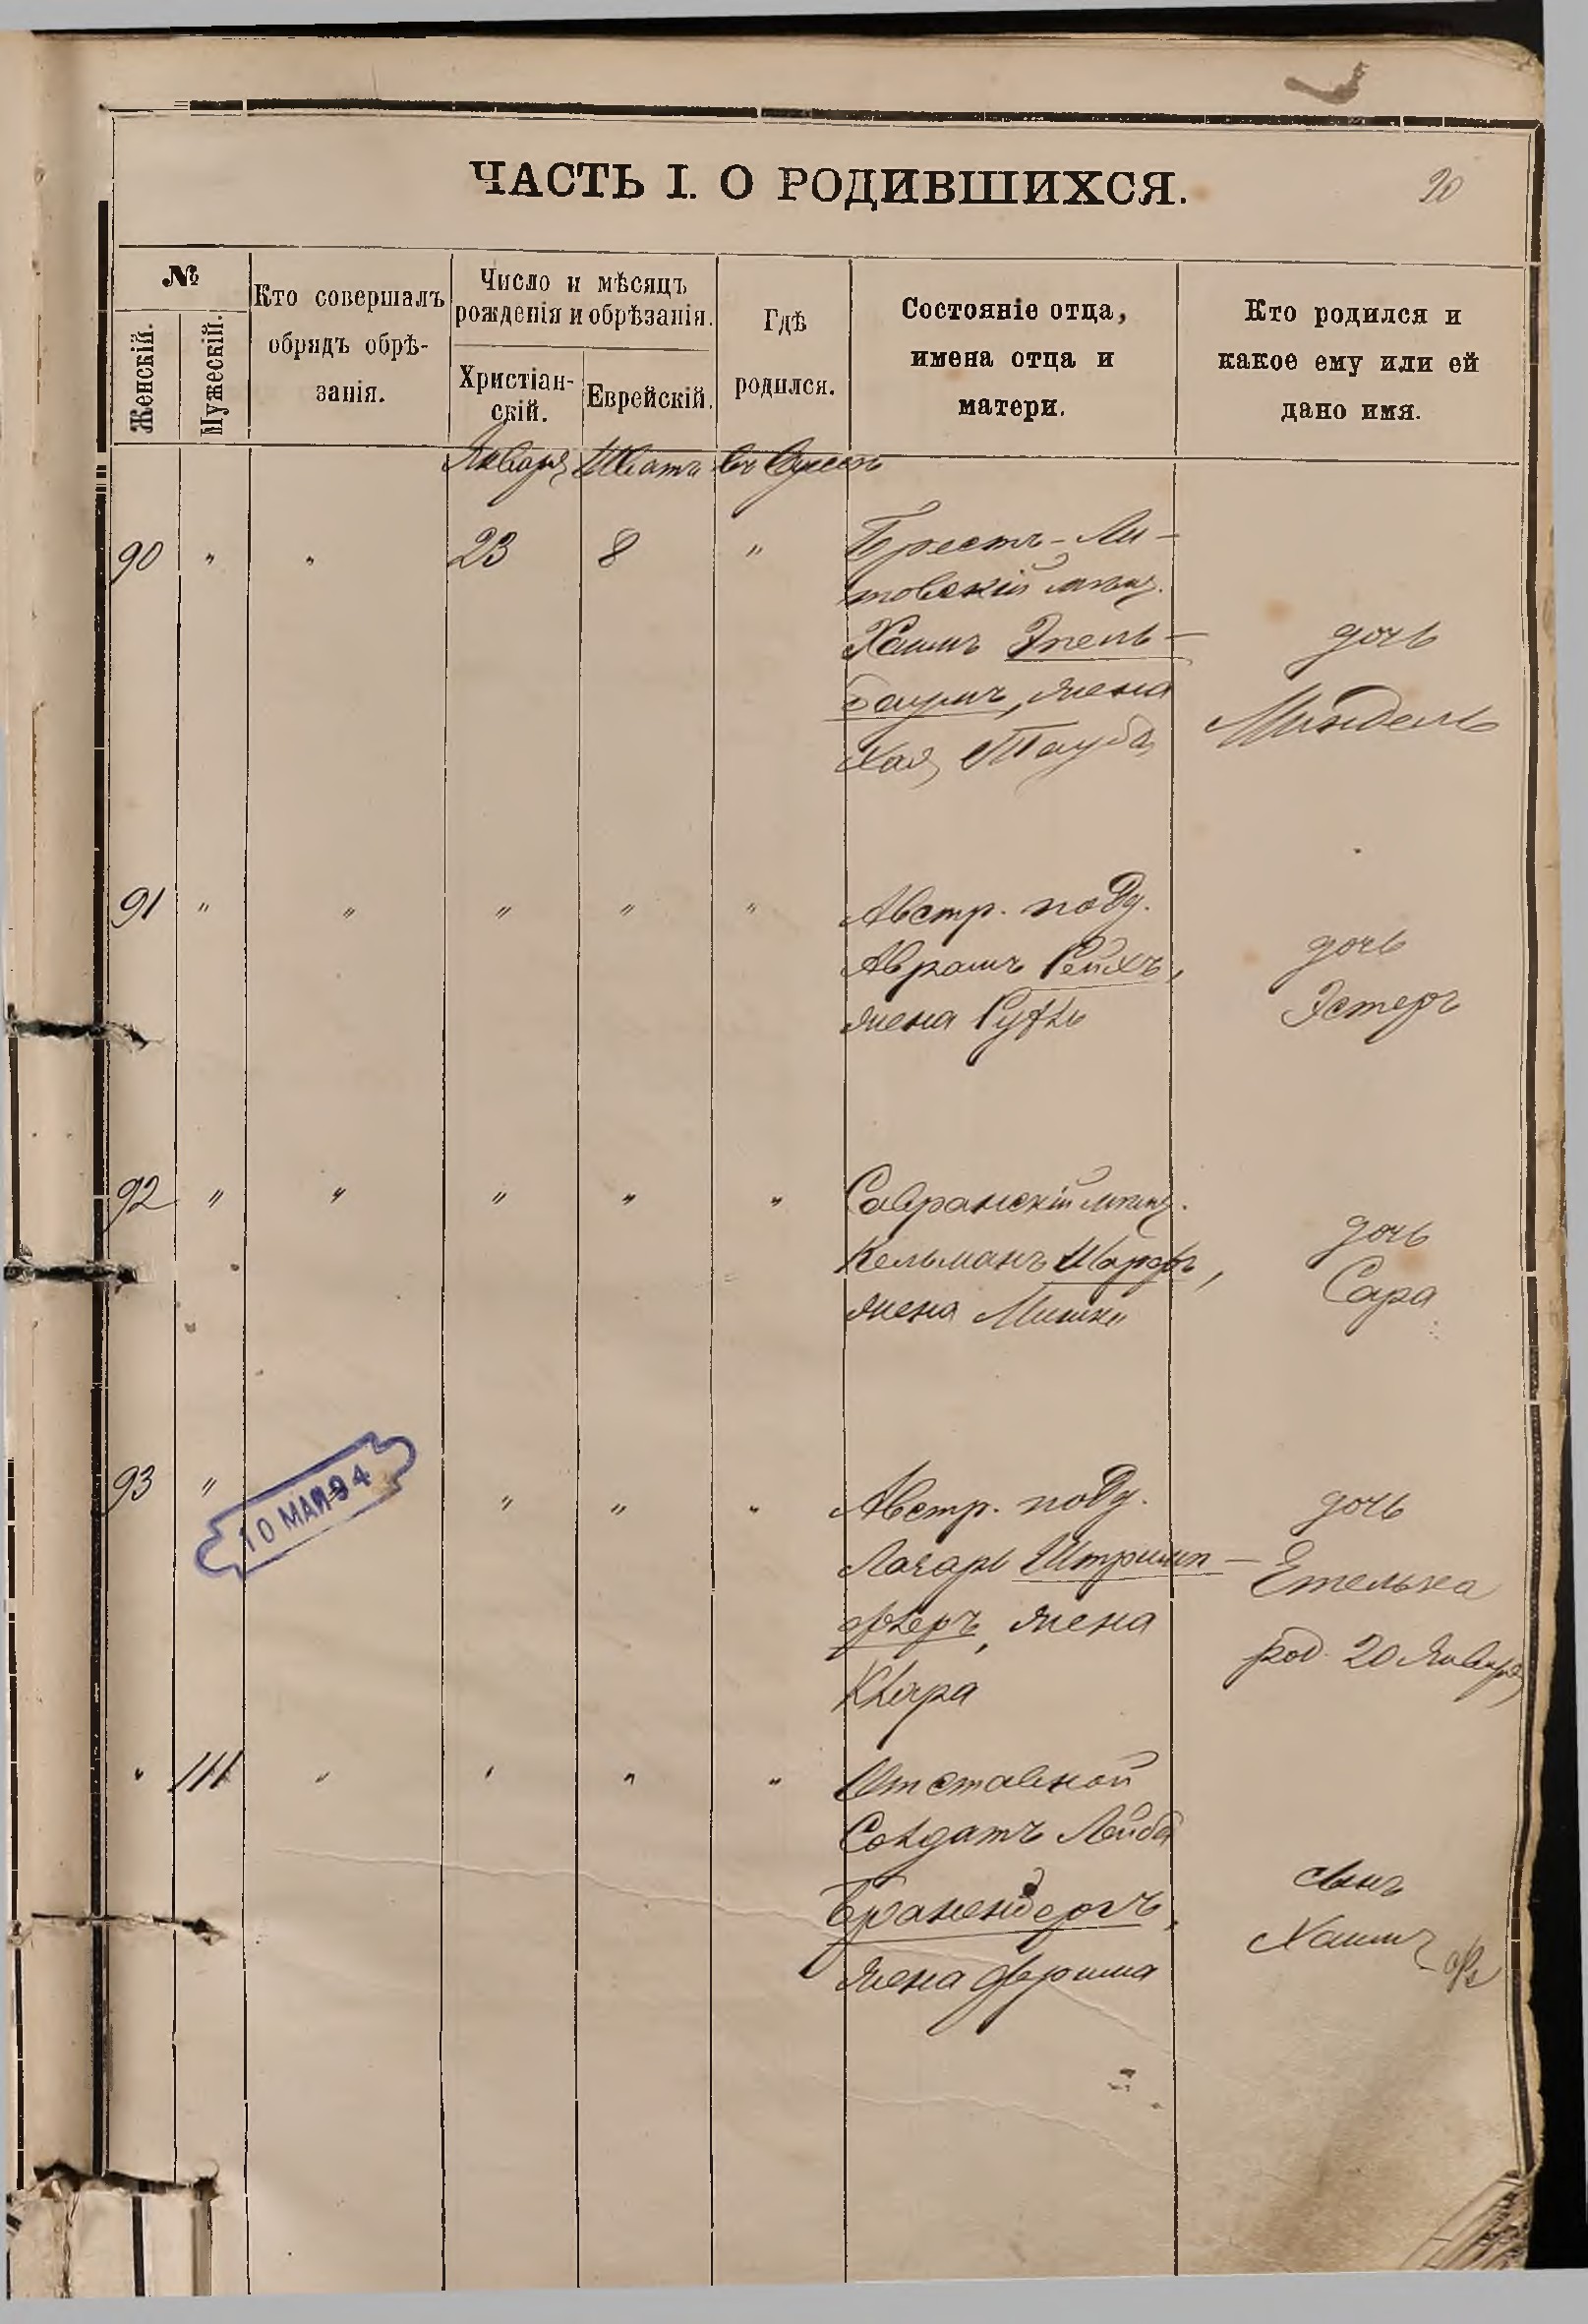 ЧАСТЬ I. О РОДИВШИХСЯ.
20
№
Женскій.
Мужескій.
Кто совершалъ
обрядъ обрѣ-
занія.
Число и мѣсяцъ
рожденія и обрѣзанія.
Христіан-
скій.
Еврейскій.
Гдѣ
родился.
Состояніе отца,
имена отца и
матери.
Кто родился и
какое ему или ей
дано имя.
Января Шватъ въ Одессѣ
90 " " 23 8 " Брестъ-Ли-
товскій мѣщ.
Хаимъ Эпель-
баумъ, жена
Хая Тауба
дочь
Миндель
91 " " " " " Австр. подд.
Аврамъ Рейхъ,
жена Рухль
дочь
Эстеръ
92 " " " " " Савранскій мѣщ.
Кельманъ Шарфъ,
жена
дочь
Сара
93 " " " " Австр. подд.
Лазарь Штримп-
феръ, жена
Клара
дочь
Етелька
род. 20 Января
10 МАЯ 94
" 111 " " " " Отставной
Солдатъ Лейба
жена Фрима
сынъ
Хаимъ